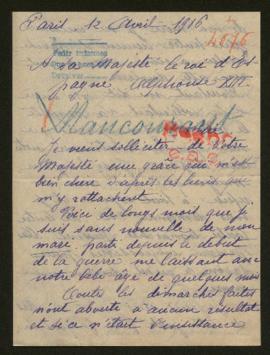 Paris 12 Avril 1916
4676
Pedir informes
A Sa Majesté le roi d'Es
pagne Alphonse XIII
Rancourt
Je viens solliciter de Votre
Majesté une grâce qui m'est
bien chère d'après les liens qui
m'y rattachent
Voice de longs mois que je
suis sans nouvelle de mon
mari, parti depuis le début
de la guerre me laissant avec
notre bébé âgé de quelques mois
Toutes les démarches faites
n'ont abouti à aucun résultat
et si ce n'était d'insistance